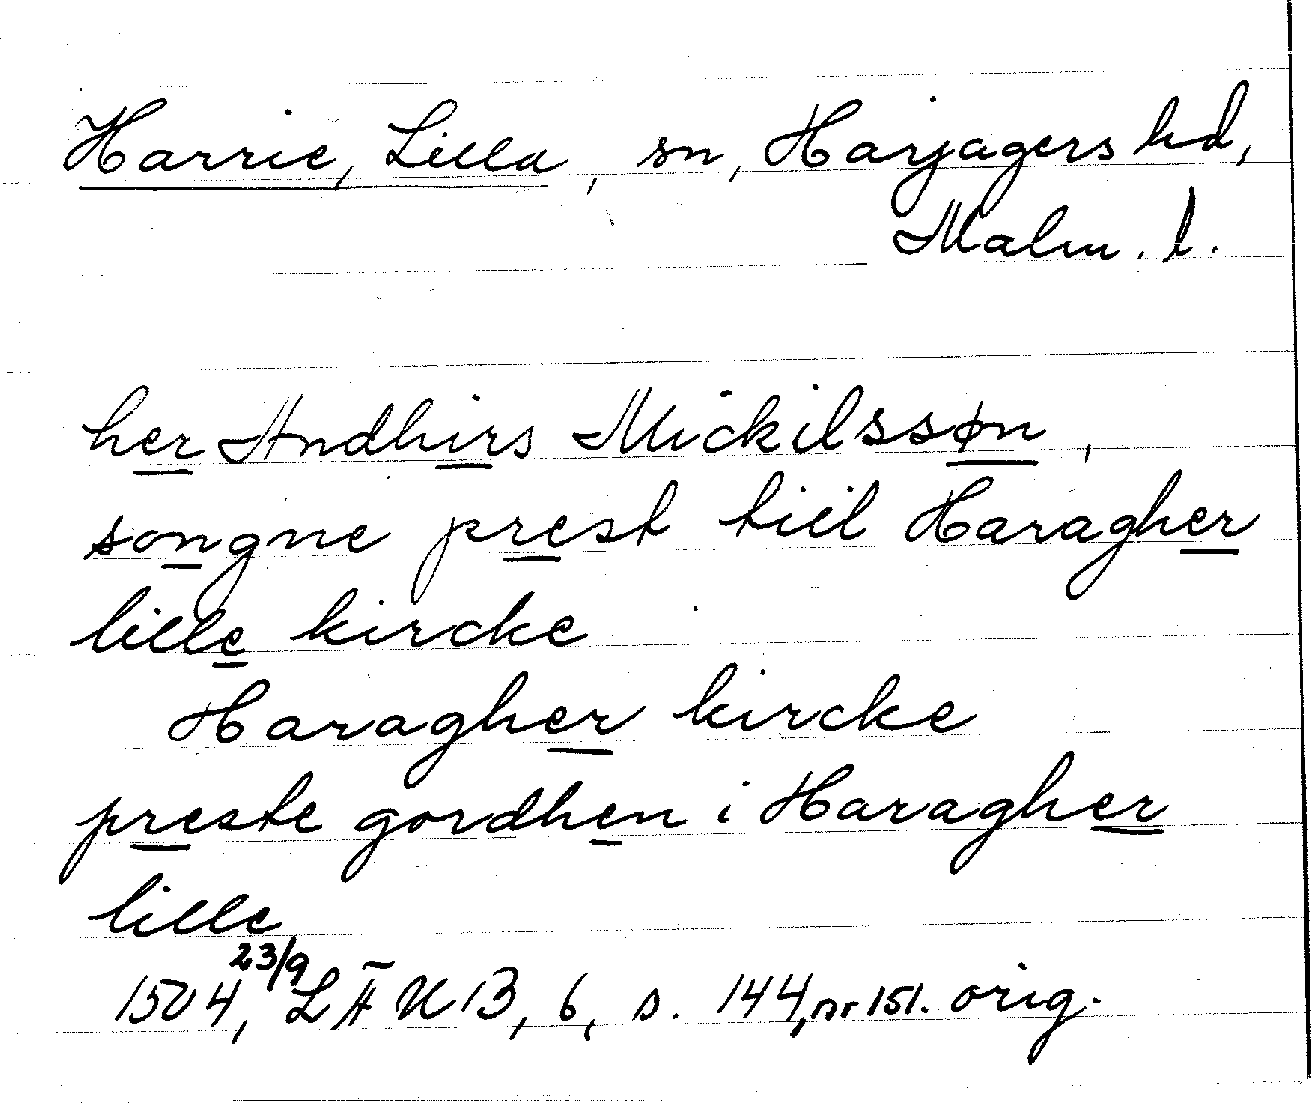 Harrie, Lilla, sn, Harjagers hd,
Malm. l.
her Andhirs Mickilssøn,
songne prest tiil Haragher
lille kircke
Haragher kircke
preste gordhen i Haragher
lille
1504, 23/9 LÄUB, 6, s. 144, nr 151. orig.